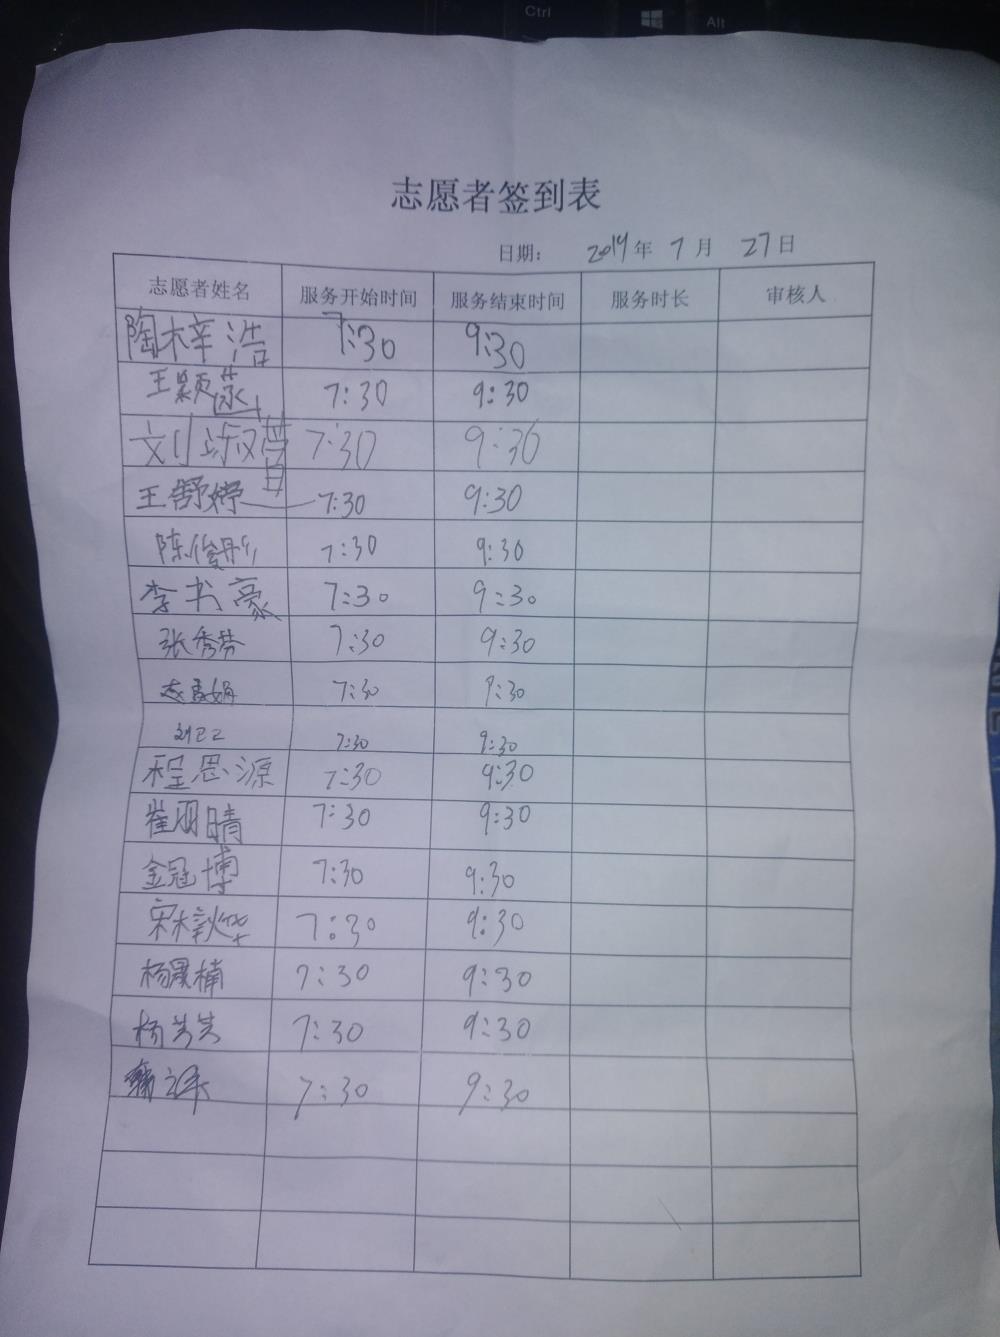 Ctrl
Alt
志愿者签到表
日期： 2019年 7月 27日
志愿者姓名 服务开始时间 服务结束时间 服务时长 审核人
陶梓浩 7:30 9:30
王颖 7:30 9:30
刘 7:30 9:30
王舒婷 7:30 9:30
陈俊彤 7:30 9:30
李书豪 7:30 9:30
张秀芬 7:30 9:30
7:30 9:30
刘 7:30 9:30
程思源 7:30 9:30
崔丽晴 7:30 9:30
金冠博 7:30 9:30
宋梓烨 7:30 9:30
杨晨楠 7:30 9:30
杨芳芳 7:30 9:30
7:30 9:30